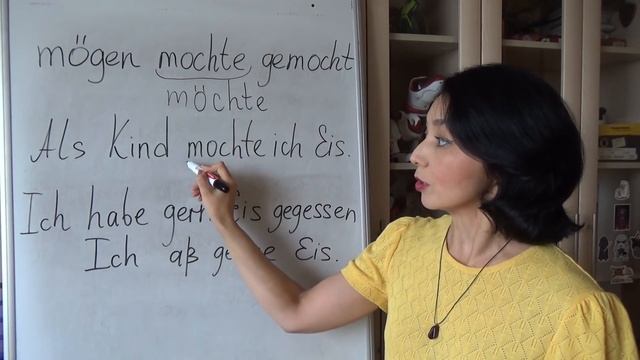 mögen mochte gemocht
möchte
Als Kind mochte ich Eis.
Ich habe Eis gegessen
Ich aß Eis.